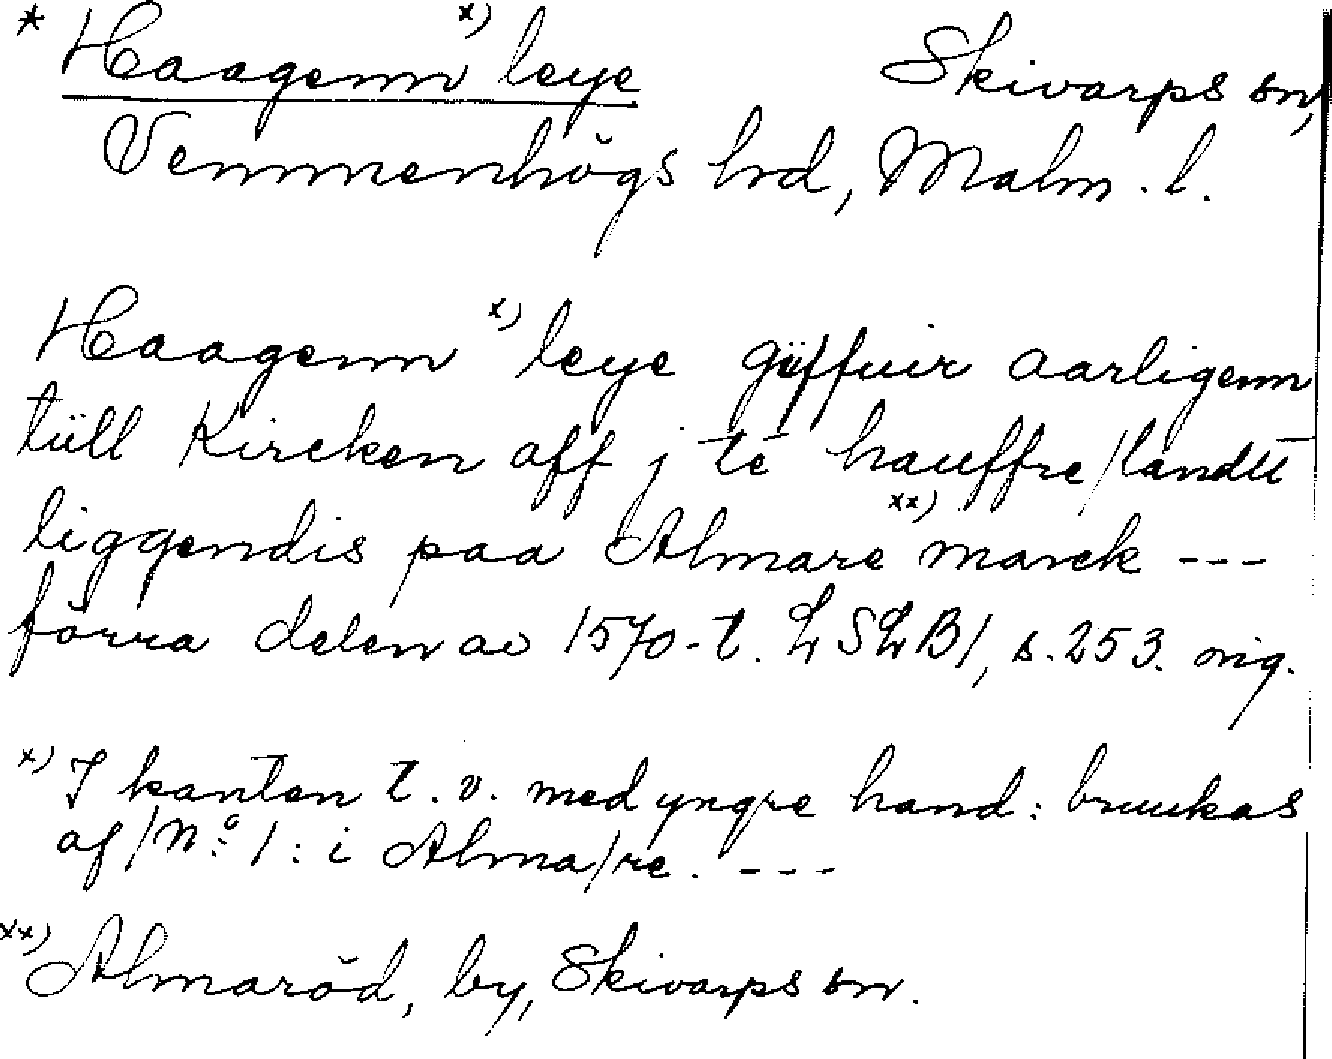 * Haagenn x) leye Skivarps sn,
Vemmenhögs hrd, Malm. l.
Haagenn x) leye güffuir aarligenn
tüll Kircken aff j te hauffre/landtt
liggendis paa Almare xx) marck ---
förra delen av 1570-t. LSLB1, s. 253. orig.
x) I kanten t. v. med yngre hand: bruukas
af/No: 1: i Alma/re. ---
xx) Almaröd, by, Skivarps sn.